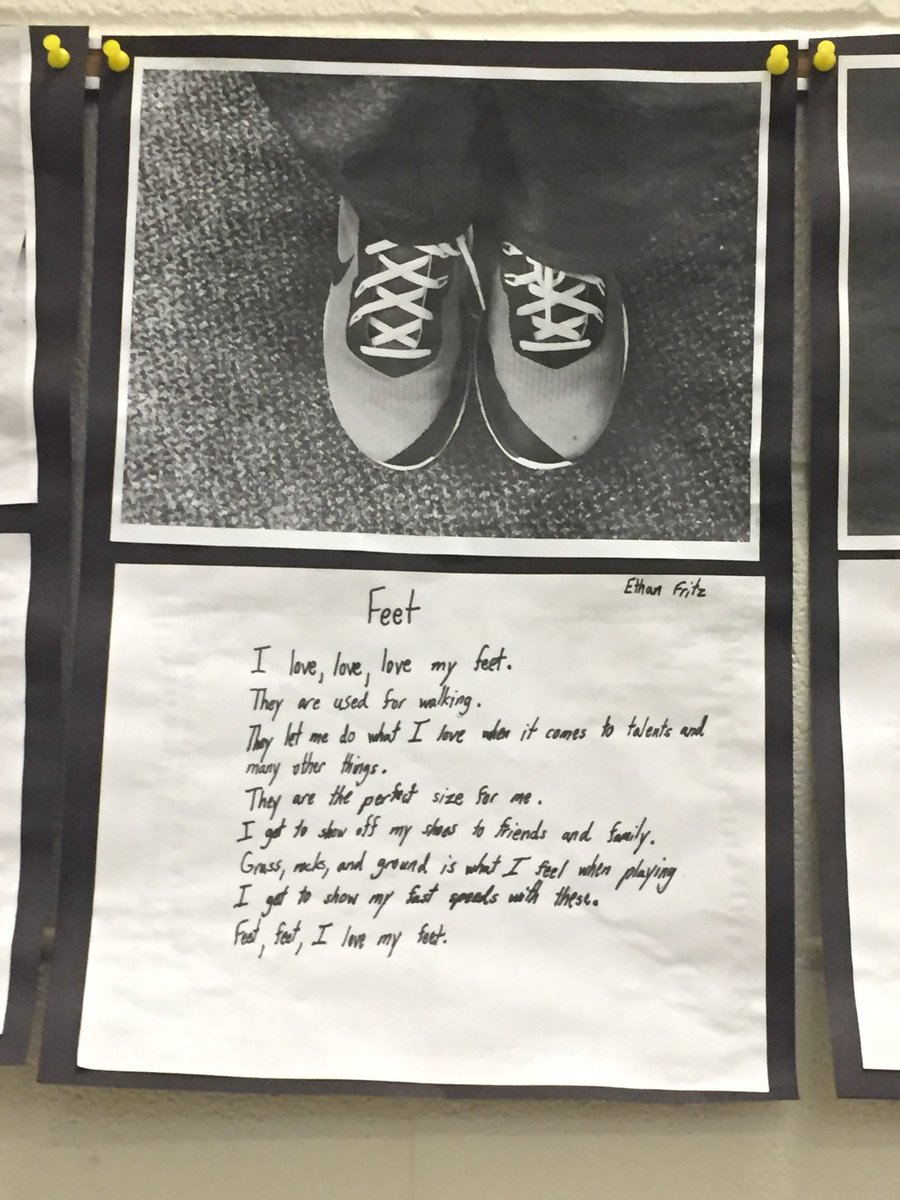 Ethan Fritz
Feet
I love, love, love my feet.
They are used for walking.
They let me do what I love when it comes to talents and
many other things.
They are the perfect size for me.
I get to show off my shoes to friends and family.
Grass, rocks, and ground is what I feel when playing
I get to show my fast speeds with these.
Feet, feet, I love my feet.